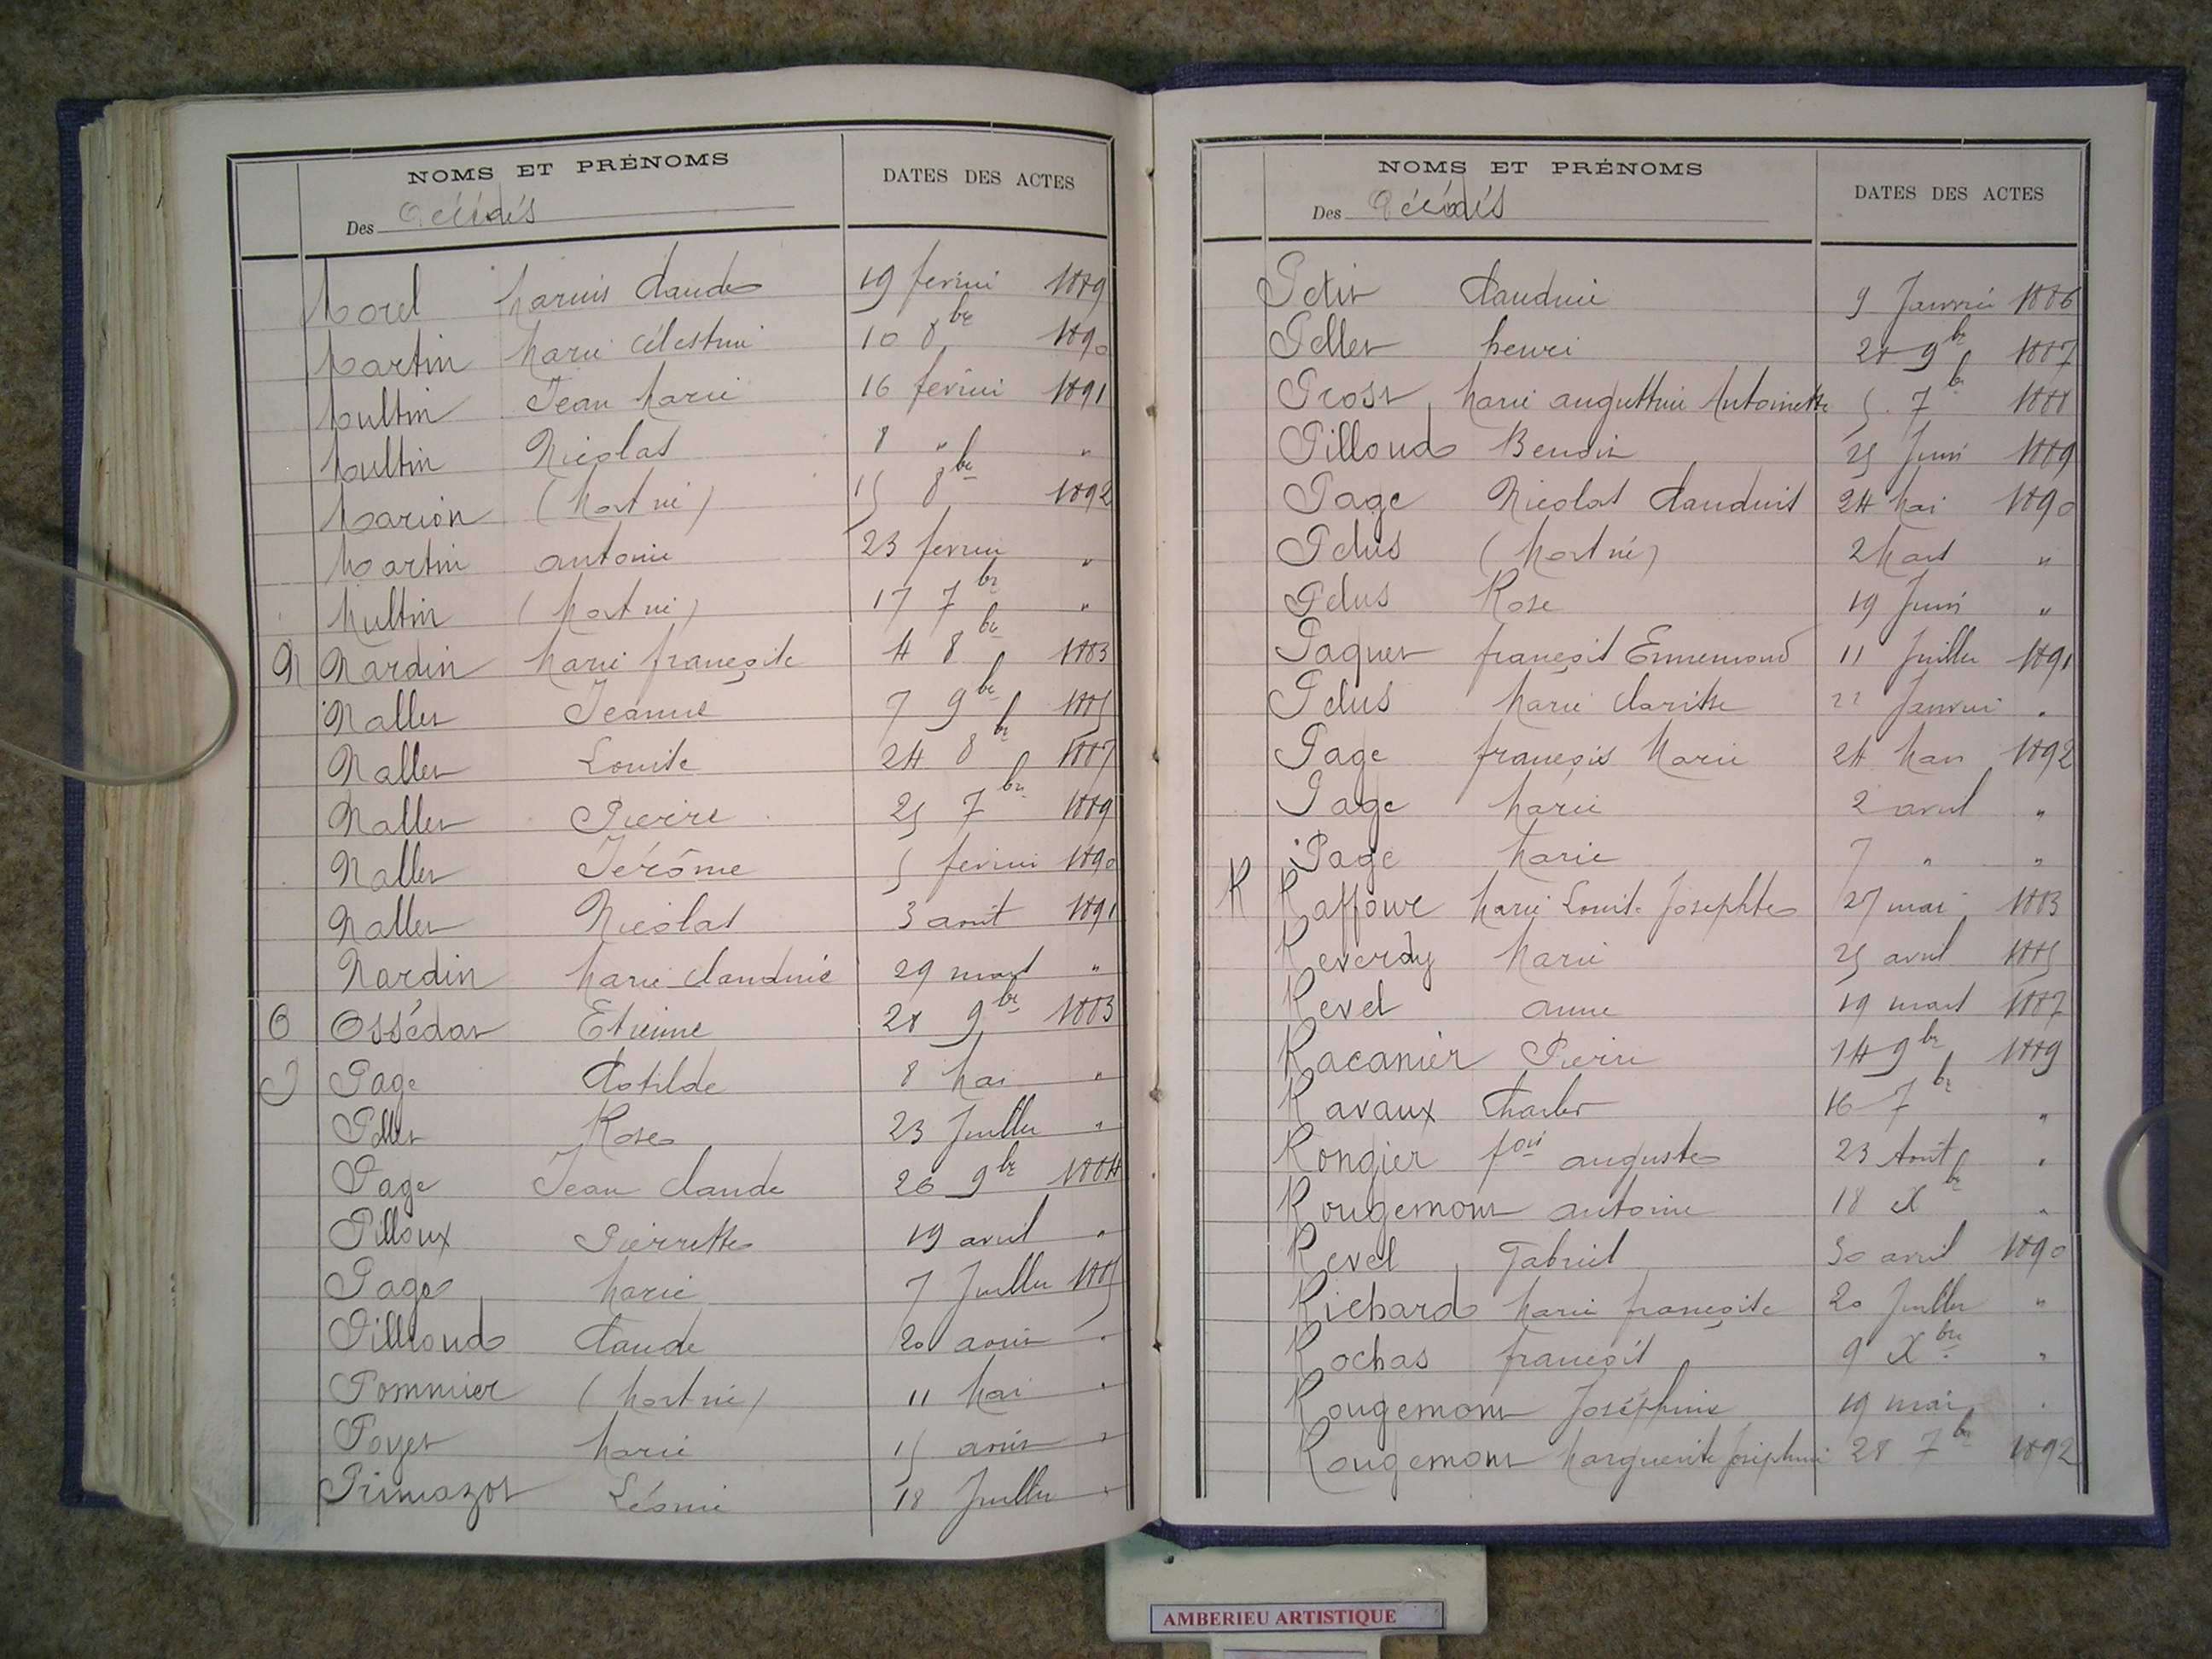 NOMS ET PRÉNOMS
DATES DES ACTES
Des Décédés
Morel Marius Claude 19 fevrier 1889
Martin Marie Célestine 10 8bre 1890
Multin Jean Marie 16 fevrier 1891
Multin Nicolas 8 " "
Marion (Mort né) 15 8bre 1892
Martin antonin 23 fevrier "
Multin (Mort né) 17 7bre "
N Nardin Marie françoise 4 8bre 1883
Nallet Jeanne 7 9bre 1885
Nallet Louise 24 8bre 1887
Nallet Pierre 25 7bre 1889
Nallet Jérôme 5 fevrier 1890
Nallet Nicolas 3 août 1891
Nardin Marie Claudine 29 mars "
O Ossédat Etienne 28 9bre 1883
P Page Clotilde 8 Mai "
Pellet Rose 23 Juillet "
Page Jean Claude 26 9bre 1884
Pilloux Pierrette 19 avril "
Page Marie 7 Juillet 1885
Pilloud Claude 20 août "
Pommier (Mort né) 11 Mai "
Poyet Marie 15 août "
Primazot Léonie 18 Juillet "
NOMS ET PRÉNOMS
DATES DES ACTES
Des Décédés
Petit Claudine 9 Janvier 1886
Pellet henri 28 9bre 1887
Prost Marie augustine Antoinette 5 7bre 1888
Pilloud Benoit 25 Juin 1889
Page Nicolas Claudius 24 Mai 1890
Pelus (Mort né) 2 Mars "
Pelus Rose 19 Juin "
Paquet françois Ennemond 11 Juillet 1891
Pelus Marie Clarisse 22 Janvier "
Page françois Marie 24 Mars 1892
Page Marie 2 avril "
Page Marie 7 " "
R Raffour Marie Louise Josephte 27 mai 1883
Reverdy Marie 25 avril 1885
Revel anne 19 mars 1887
Racanier Pierre 14 9bre 1889
Ravaux Charles 16 7bre "
Rongier fois auguste 23 Août "
Rougemont antoine 18 Xbre "
Revel Gabriel 30 avril 1890
Richard Marie françoise 20 Juillet "
Rochas françois 9 Xbre "
Rougemont Joséphine 19 mai "
Rougemont Marguerite Joséphine 28 7bre 1892
AMBERIEU ARTISTIQUE